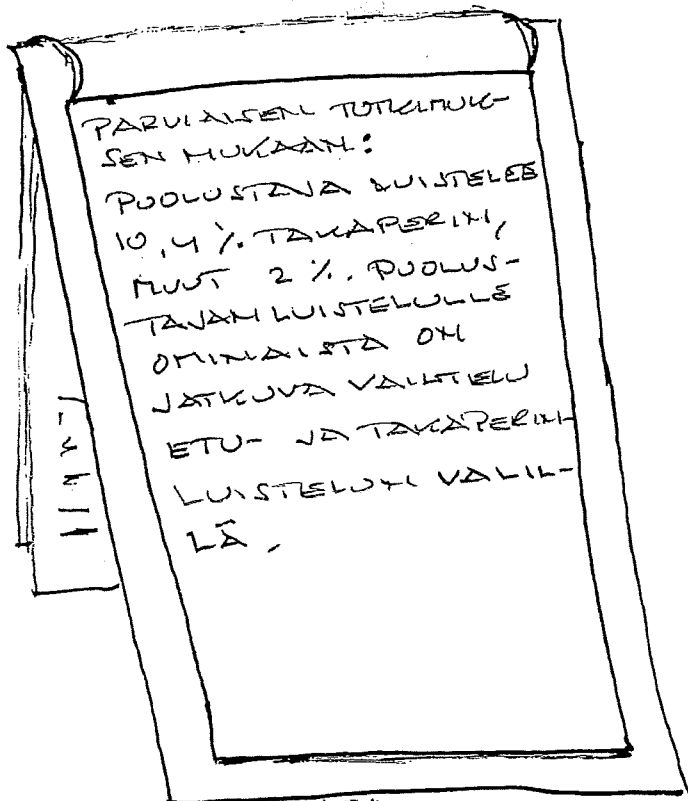 PARVIAISEN TUTKIMUK-
SEN MUKAAN:
PUOLUSTAJA LUISTELEE
10,4 %. TAKAPERIN,
MUUT 2 %. PUOLUS-
TAJAN LUISTELULLE
OMINAISTA ON
JATKUVA VAIHTELU
ETU- JA TAKAPERIN-
LUISTELUN VALIL-
LÄ.